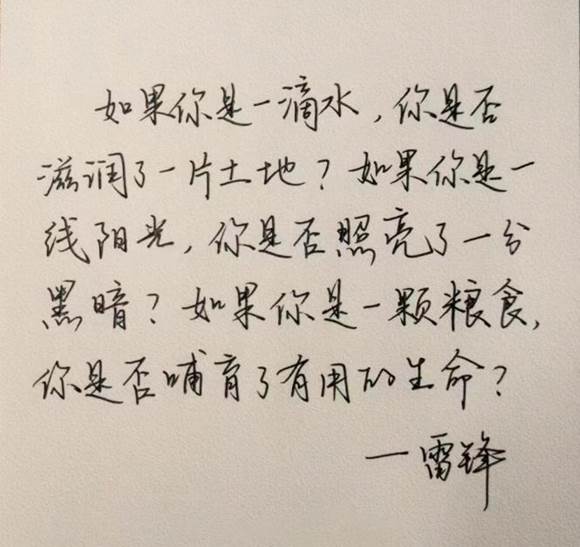 如果你是一滴水，你是否
滋润了一片土地？如果你是一
线阳光，你是否照亮了一分
黑暗？如果你是一颗粮食，
你是否哺育了有用的生命？
—雷锋